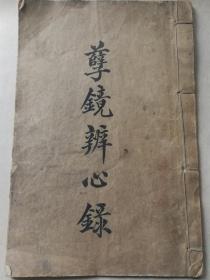 孽鏡辨心錄